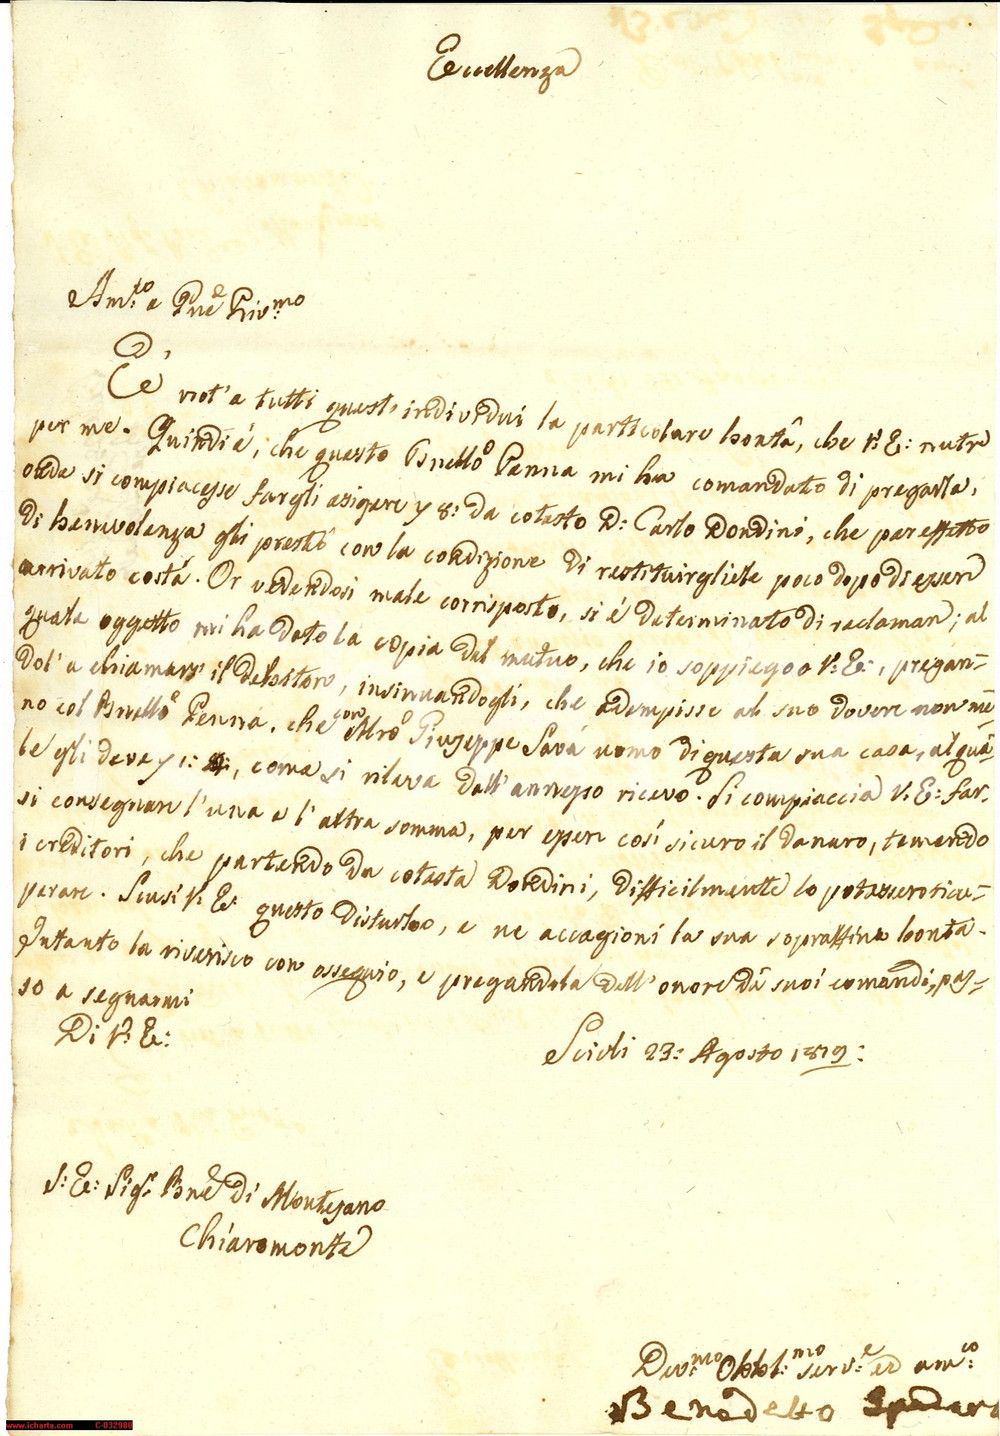 Eccellenza
Am:to e Pne Riv:mo
É not'a tutti quest'individui la particolare bontà, che V: E: nutre
per me. Quindi é, che questo Bnello Penna mi ha comandato di pregarla,
onde si compiacesse fargli esigere 8: da cotesto D: Carlo Dondini, che per effetto
di benevolenza gli prestó con la condizione di restituirgliele poco dopo di esser
arrivato costá. Or vedendosi male corrisposto, si é determinato di reclamare; al
quale oggetto mi ha dato la copia del mutuo, che io soppiego a V: E:, pregan=
dol'a chiamarsi il debitore, insinuandogli, che adempisse al suo dovere non me
no col Bnello Penna, che con Mro Giuseppe Savá uomo di questa sua casa, al qua
le gli deve, come si rileva dall'annesso ricevo. Si compiaccia V: E: far=
si consegnare l'una e l'altra somma, per esser cosí sicuro il danaro, temendo
i creditori, che partendo da cotesta Dondini, difficilmente lo potessero ricu=
perare. Scusi V: E: questo disturbo, e ne accagioni la sua sopraffina bontá.
Intanto la riverisco con ossequio, e pregandola dell'onore dé suoi comandi, pas=
so a segnarmi
Di V: E:
Scicli 23: Agosto 1819:
S: E: Sigr. Bne di Montejano
Chiaromonte
Dev:mo Obbl:mo serv:e ed am:co
Benedetto Spadaro
www.icharta.com C-032980